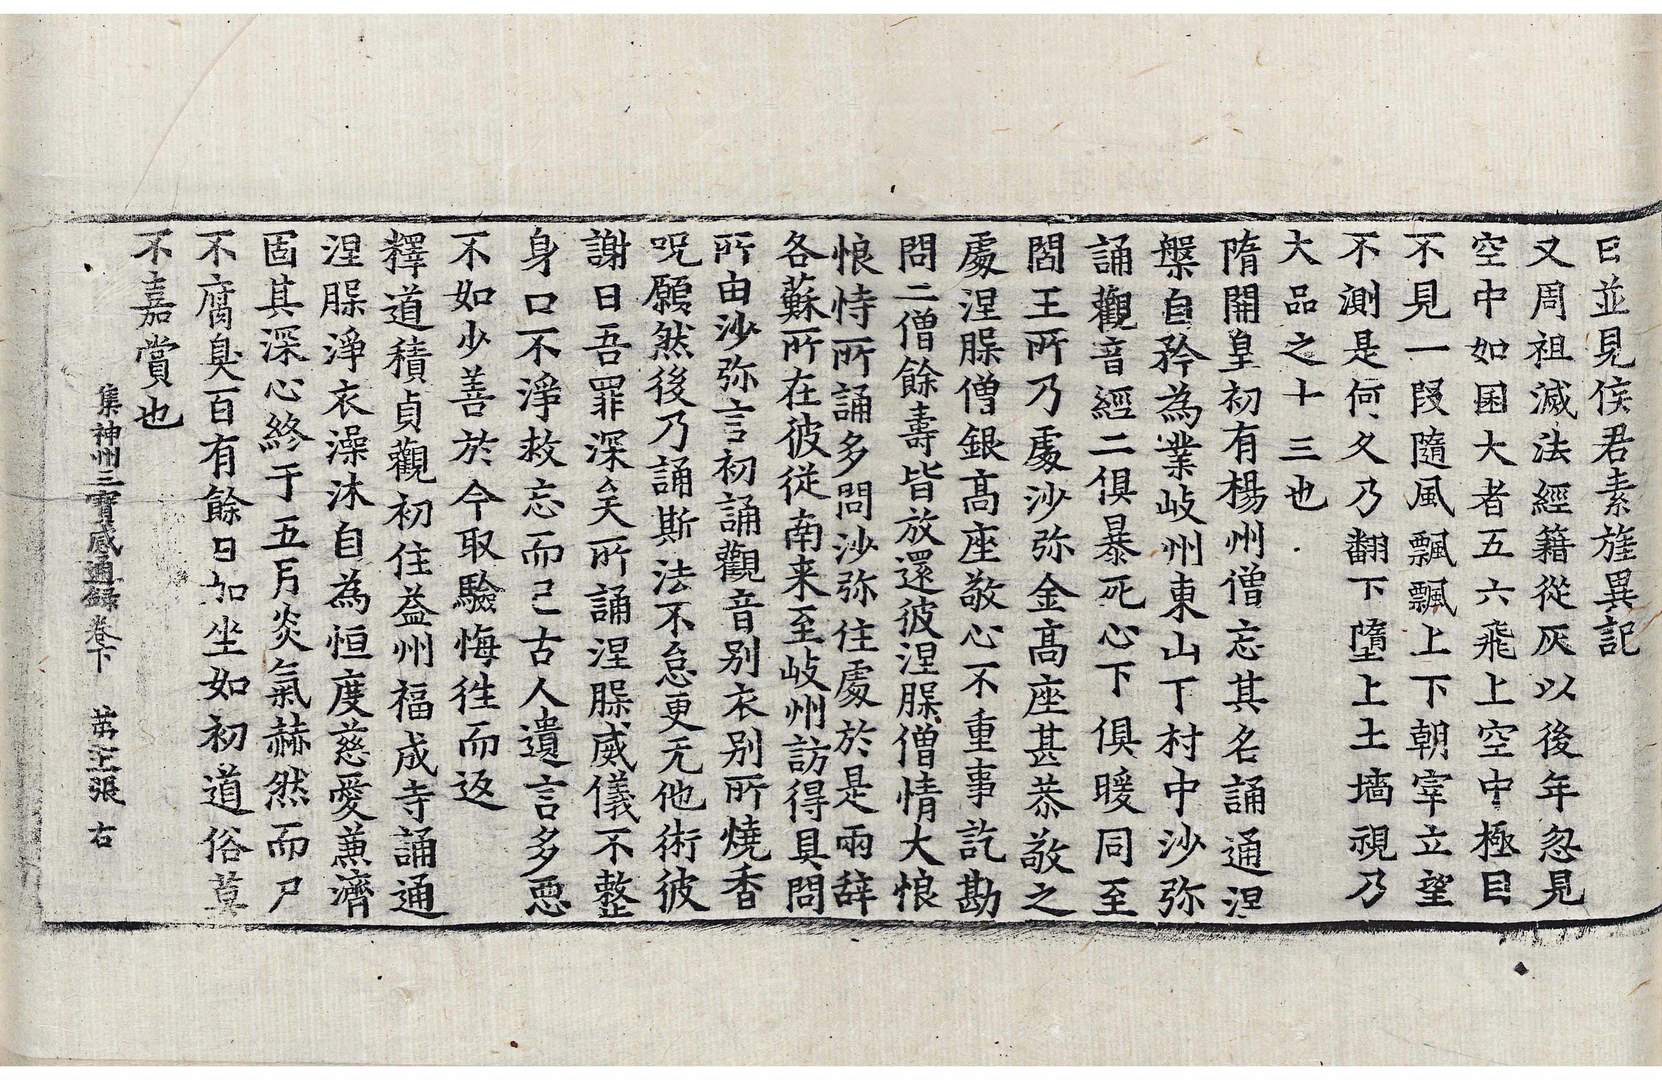 巳並見侯君素旌異記
又周祖滅法經籍從灰以後年忽見
空中如囷大者五六飛上空中極目
不見一段隨風飄飄上下朝宰立望
不測是何久乃翻下墮上土墻視乃
大品之十三也
隋開皇初有楊州僧忘其名誦通涅
槃自矜為業岐州東山下村中沙弥
誦觀音經二俱暴死心下俱暖同至
閻王所乃處沙弥金髙座甚恭敬之
處涅槃僧銀髙座敬心不重事訖勘
問二僧餘壽皆放還彼涅槃僧情大恨
恨恃所誦多問沙弥住處於是兩辞
各蘇所在彼從南来至岐州訪得具問
所由沙弥言初誦觀音别衣别所燒香
呪願然後乃誦斯法不怠更无他術彼
謝曰吾罪深矣所誦涅槃威儀不整
身口不淨救忘而已古人遺言多惡
不如少善於今取驗悔徃而返
釋道積貞觀初住益州福成寺誦通
涅槃淨衣澡沐自為恒度慈愛兼濟
固其深心終于五月炎氣赫然而尸
不腐臭百有餘日如坐如初道俗莫
不嘉賞也
集神州三寶感通録卷下 苐王張 右